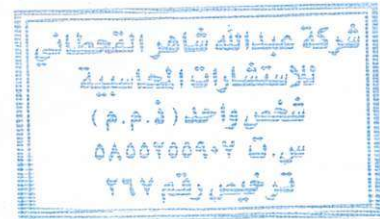 شركة عبدالله شاهر القحطاني
للإستشارات المحاسبية
شخص واحد (ذ.م.م)
س.ت ٥٨٥٥٢٥٥٩٠٧
ترخيص رقم ٢٦٧